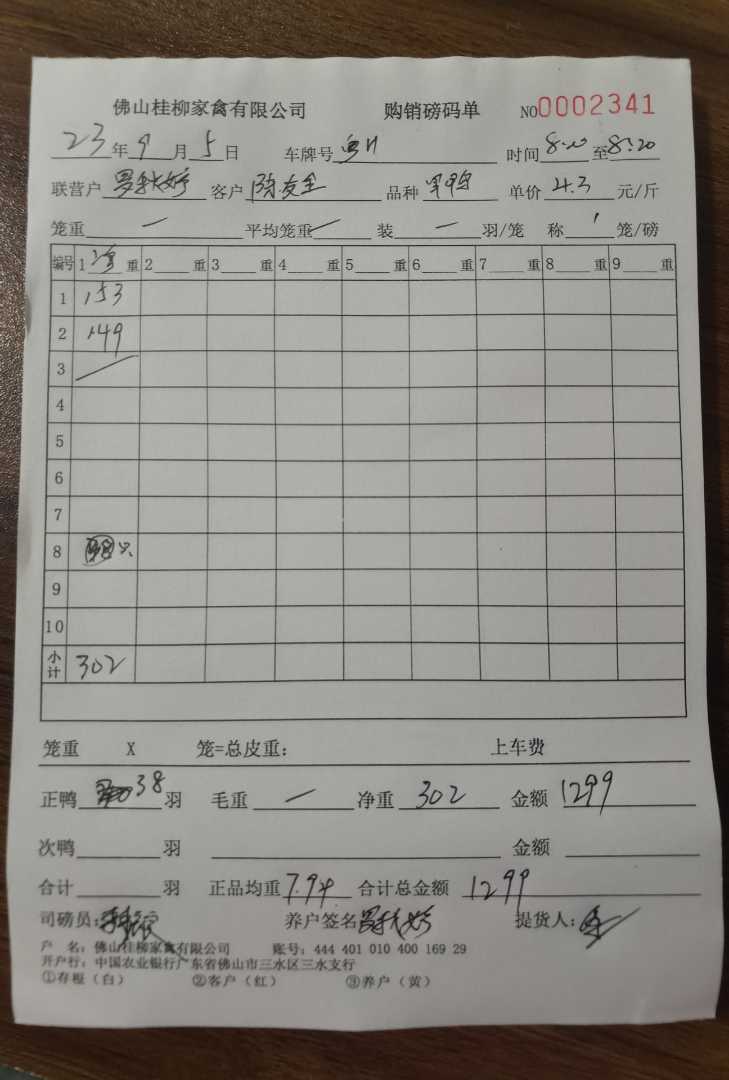 佛山桂柳家禽有限公司 购销磅码单 NO0002341
23年9月5日 车牌号 粤H 时间8:20至8:20
联营户 客户 陈友全 品种 单价 4.3 元/斤
笼重 一 平均笼重 一 装 一 羽/笼 称 1 笼/磅
编号 1净重 2 重 3 重 4 重 5 重 6 重 7 重 8 重 9 重
1 153
2 149
3
4
5
6
7
8 只
9
10
小计 302
笼重 X 笼=总皮重: 上车费
正鸭 38 羽 毛重 一 净重 302 金额 1299
次鸭 羽 金额
合计 羽 正品均重 7.94 合计总金额 1299
司磅员: 养户签名 提货人:
户 名: 佛山桂柳家禽有限公司 账号: 444 401 010 400 169 29
开户行: 中国农业银行广东省佛山市三水区三水支行
①存根(白) ②客户(红) ③养户(黄)